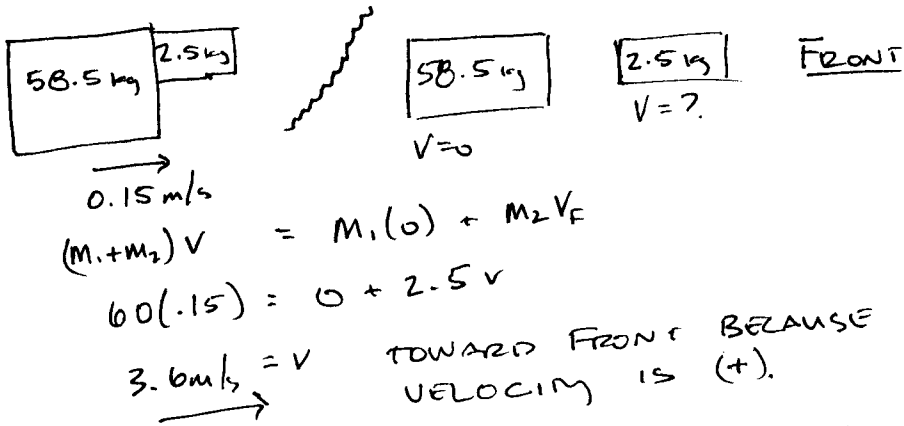 58.5 kg 2.5 kg 58.5 kg 2.5 kg FRONT
V=0 V=?
0.15 m/s
(M₁+M₂)V = M₁(0) + M₂VF
60(.15) = 0 + 2.5 V
3.6m/s = V TOWARD FRONT BECAUSE
VELOCITY IS (+).